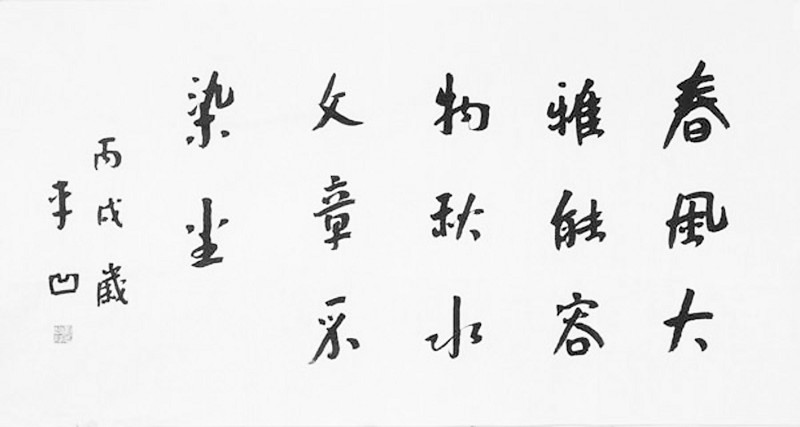 春風大
雅能容
物秋水
文章不
染尘
丙戌歲
平凹